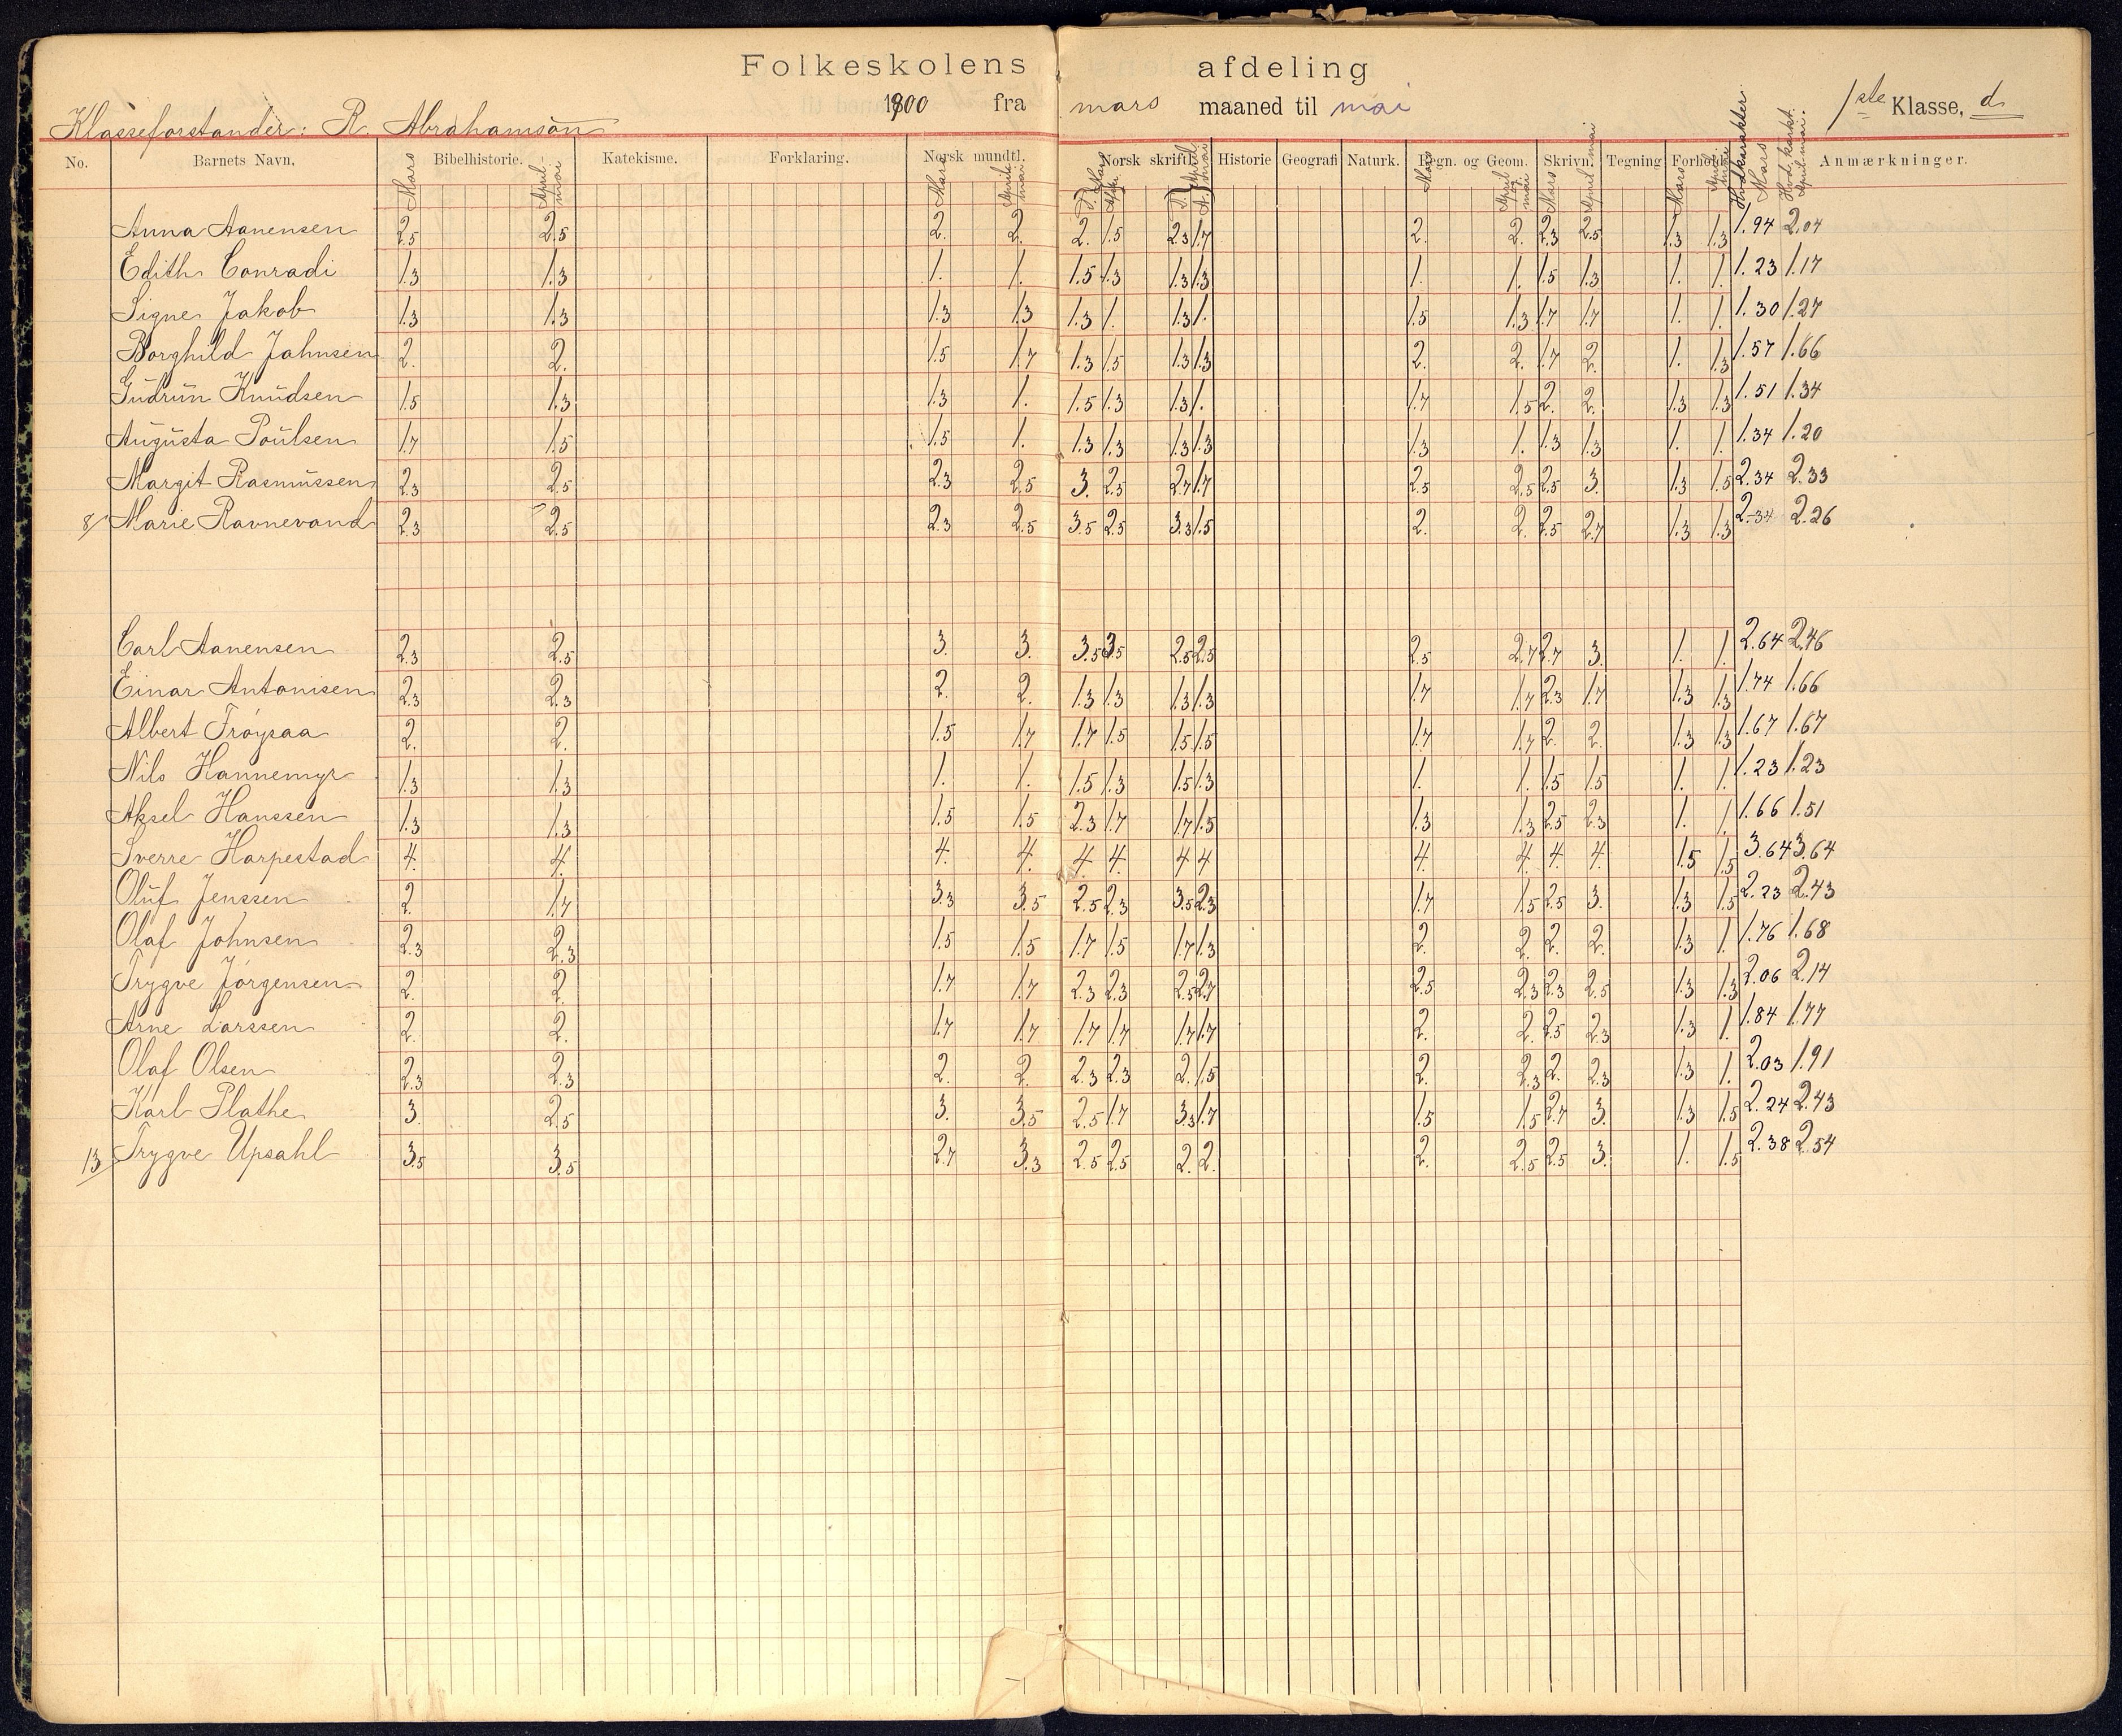 Folkeskolens afdeling
1900 fra mars maaned til mai 1ste Klasse, d
Klasseforstander: R. Abrahamson
No. Barnets Navn. Bibelhistorie. Katekisme. Forklaring. Norsk mundtl. Norsk skriftl. Historie Geografi Naturk. Regn. og Geom. Skrivn. Tegning Forhold. Anmærkninger.
Mars April-mai Mars April mai D. A. Mars D. A. April mai Mars April og mai Mars April mai Mars April mai Hovedkarakter Mars Hovedkarakt. April mai.
Anna Aanensen 2.5 2.5 2. 2. 2. 1.5 2.3 1.7 2. 2. 2.3 2.5 1.3 1.3 1.94 2.04
Edith Conradi 1.3 1.3 1. 1. 1.5 1.3 1.3 1.3 1. 1. 1.5 1.3 1. 1. 1.23 1.17
Signe Jakob 1.3 1.3 1.3 1.3 1.3 1. 1.3 1. 1.5 1.3 1.7 1.7 1. 1. 1.30 1.27
Borghild Jahnsen 2. 2. 1.5 1.7 1.3 1.5 1.3 1.3 2. 2. 1.7 2. 1. 1.3 1.57 1.66
Gudrun Knudsen 1.5 1.3 1.3 1. 1.5 1.3 1.3 1. 1.7 1.5 2. 2. 1.3 1.3 1.51 1.34
Augusta Poulsen 1.7 1.5 1.5 1. 1.3 1.3 1.3 1.3 1.3 1. 1.3 1.3 1. 1. 1.34 1.20
Margit Rasmussen 2.3 2.5 2.3 2.5 3. 2.5 2.7 1.7 2.5 2.5 2.5 3. 1.3 1.5 2.34 2.33
8/ Marie Ravnevand 2.3 2.5 2.3 2.5 3.5 2.5 3.3 1.5 2. 2. 2.5 2.7 1.3 1.3 2.34 2.26
Carl Aanensen 2.3 2.5 3. 3. 3.5 3.5 2.5 2.5 2.5 2.7 2.7 3. 1. 1. 2.64 2.46
Einar Antonisen 2.3 2.3 2. 2. 1.3 1.3 1.3 1.3 1.7 1.7 2.3 1.7 1.3 1.3 1.74 1.66
Albert Frøysaa 2. 2. 1.5 1.7 1.7 1.5 1.5 1.5 1.7 1.7 2. 2. 1.3 1.3 1.67 1.67
Nils Hannemyr 1.3 1.3 1. 1. 1.5 1.3 1.5 1.3 1. 1. 1.5 1.5 1. 1. 1.23 1.23
Aksel Hanssen 1.3 1.3 1.5 1.5 2.3 1.7 1.7 1.5 1.3 1.3 2.5 2.3 1. 1. 1.66 1.51
Sverre Harpestad 4. 4. 4. 4. 4. 4. 4 4 4. 4. 4. 4. 1.5 1.5 3.64 3.64
Oluf Jenssen 2. 1.7 3.3 3.5 2.5 2.3 3.5 2.3 1.7 1.5 2.5 3. 1.3 1.5 2.23 2.43
Olaf Johnsen 2.3 2.3 1.5 1.5 1.7 1.5 1.7 1.3 2. 2. 2. 2. 1.3 1. 1.76 1.68
Trygve Jørgensen 2. 2. 1.7 1.7 2.3 2.3 2.5 2.7 2.5 2.3 2.3 2.5 1.3 1.3 2.06 2.14
Arne Larssen 2. 2. 1.7 1.7 1.7 1.7 1.7 1.7 2. 2. 2.5 2.3 1.3 1. 1.84 1.77
Olaf Olsen 2.3 2.3 2. 2. 2.3 2.3 2. 1.5 2. 2.3 2. 2.3 1.3 1. 2.03 1.91
Karl Plathe 3. 2.5 3. 3.5 2.5 1.7 3.3 1.7 1.5 1.5 2.7 3. 1.3 1.5 2.24 2.43
13/ Trygve Upsahl 3.5 3.5 2.7 3.3 2.5 2.5 2. 2. 2. 2.5 2.5 3. 1. 1.5 2.38 2.54